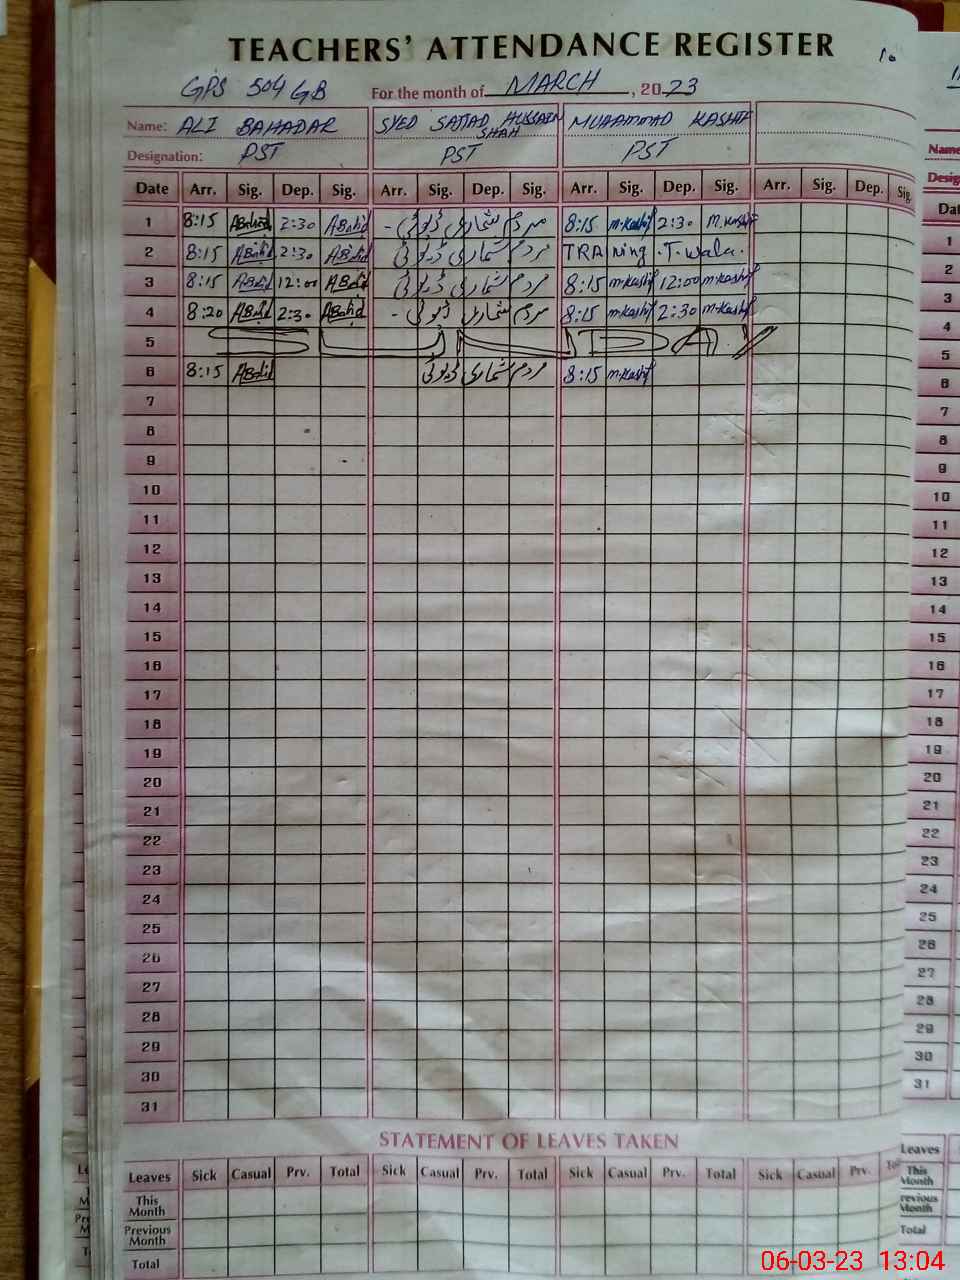 TEACHERS' ATTENDANCE REGISTER
10
GPS 504 GB For the month of MARCH, 2023
Name: ALI BAHADAR SYED SAJJAD HUSSAIN SHAH MUHAMMAD KASHIF
Designation: PST PST PST
Date Arr. Sig. Dep. Sig. Arr. Sig. Dep. Sig. Arr. Sig. Dep. Sig. Arr. Sig. Dep. Sig.
1 8:15 ABahid 2:30 ABahid مردم شماری ڈیوٹی - 8:15 m.Kashif 2:30 M.Kashif
2 8:15 ABahid 2:30 ABahid مردم شماری ڈیوٹی TRAining .T.wala.
3 8:15 ABahid 12:00 ABahid مردم شماری ڈیوٹی 8:15 m.Kashif 12:00 m.Kashif
4 8:20 ABahid 2:30 ABahid مردم شماری ڈیوٹی - 8:15 m.Kashif 2:30 m.Kashif
5 SUNDAY
6 8:15 ABahid مردم شماری ڈیوٹی 8:15 m.Kashif
7
8
9
10
11
12
13
14
15
16
17
18
19
20
21
22
23
24
25
26
27
28
29
30
31
STATEMENT OF LEAVES TAKEN
Leaves Sick Casual Prv. Total Sick Casual Prv. Total Sick Casual Prv. Total Sick Casual Prv.
This Month
Previous Month
Total
Name
1
2
3
4
5
6
7
8
9
10
11
12
13
14
15
16
17
18
19
20
21
22
23
24
25
26
27
28
29
30
31
Leaves
This Month
Total
06-03-23 13:04